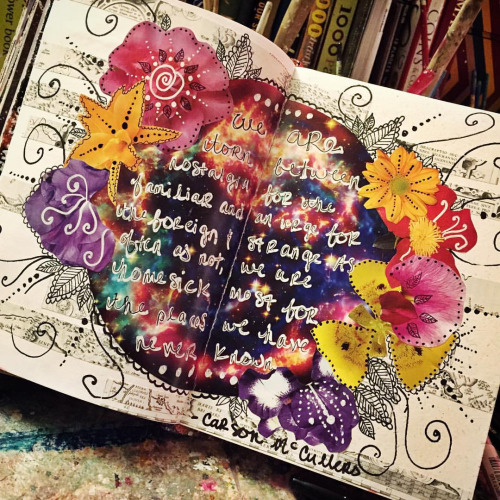 We ARE
torn between
nostalgia for the
familiar and an urge for
the foreign & strange. As
often as not, we are
homesick most for
the places we have
never known
CARSON McCullers
1000
000